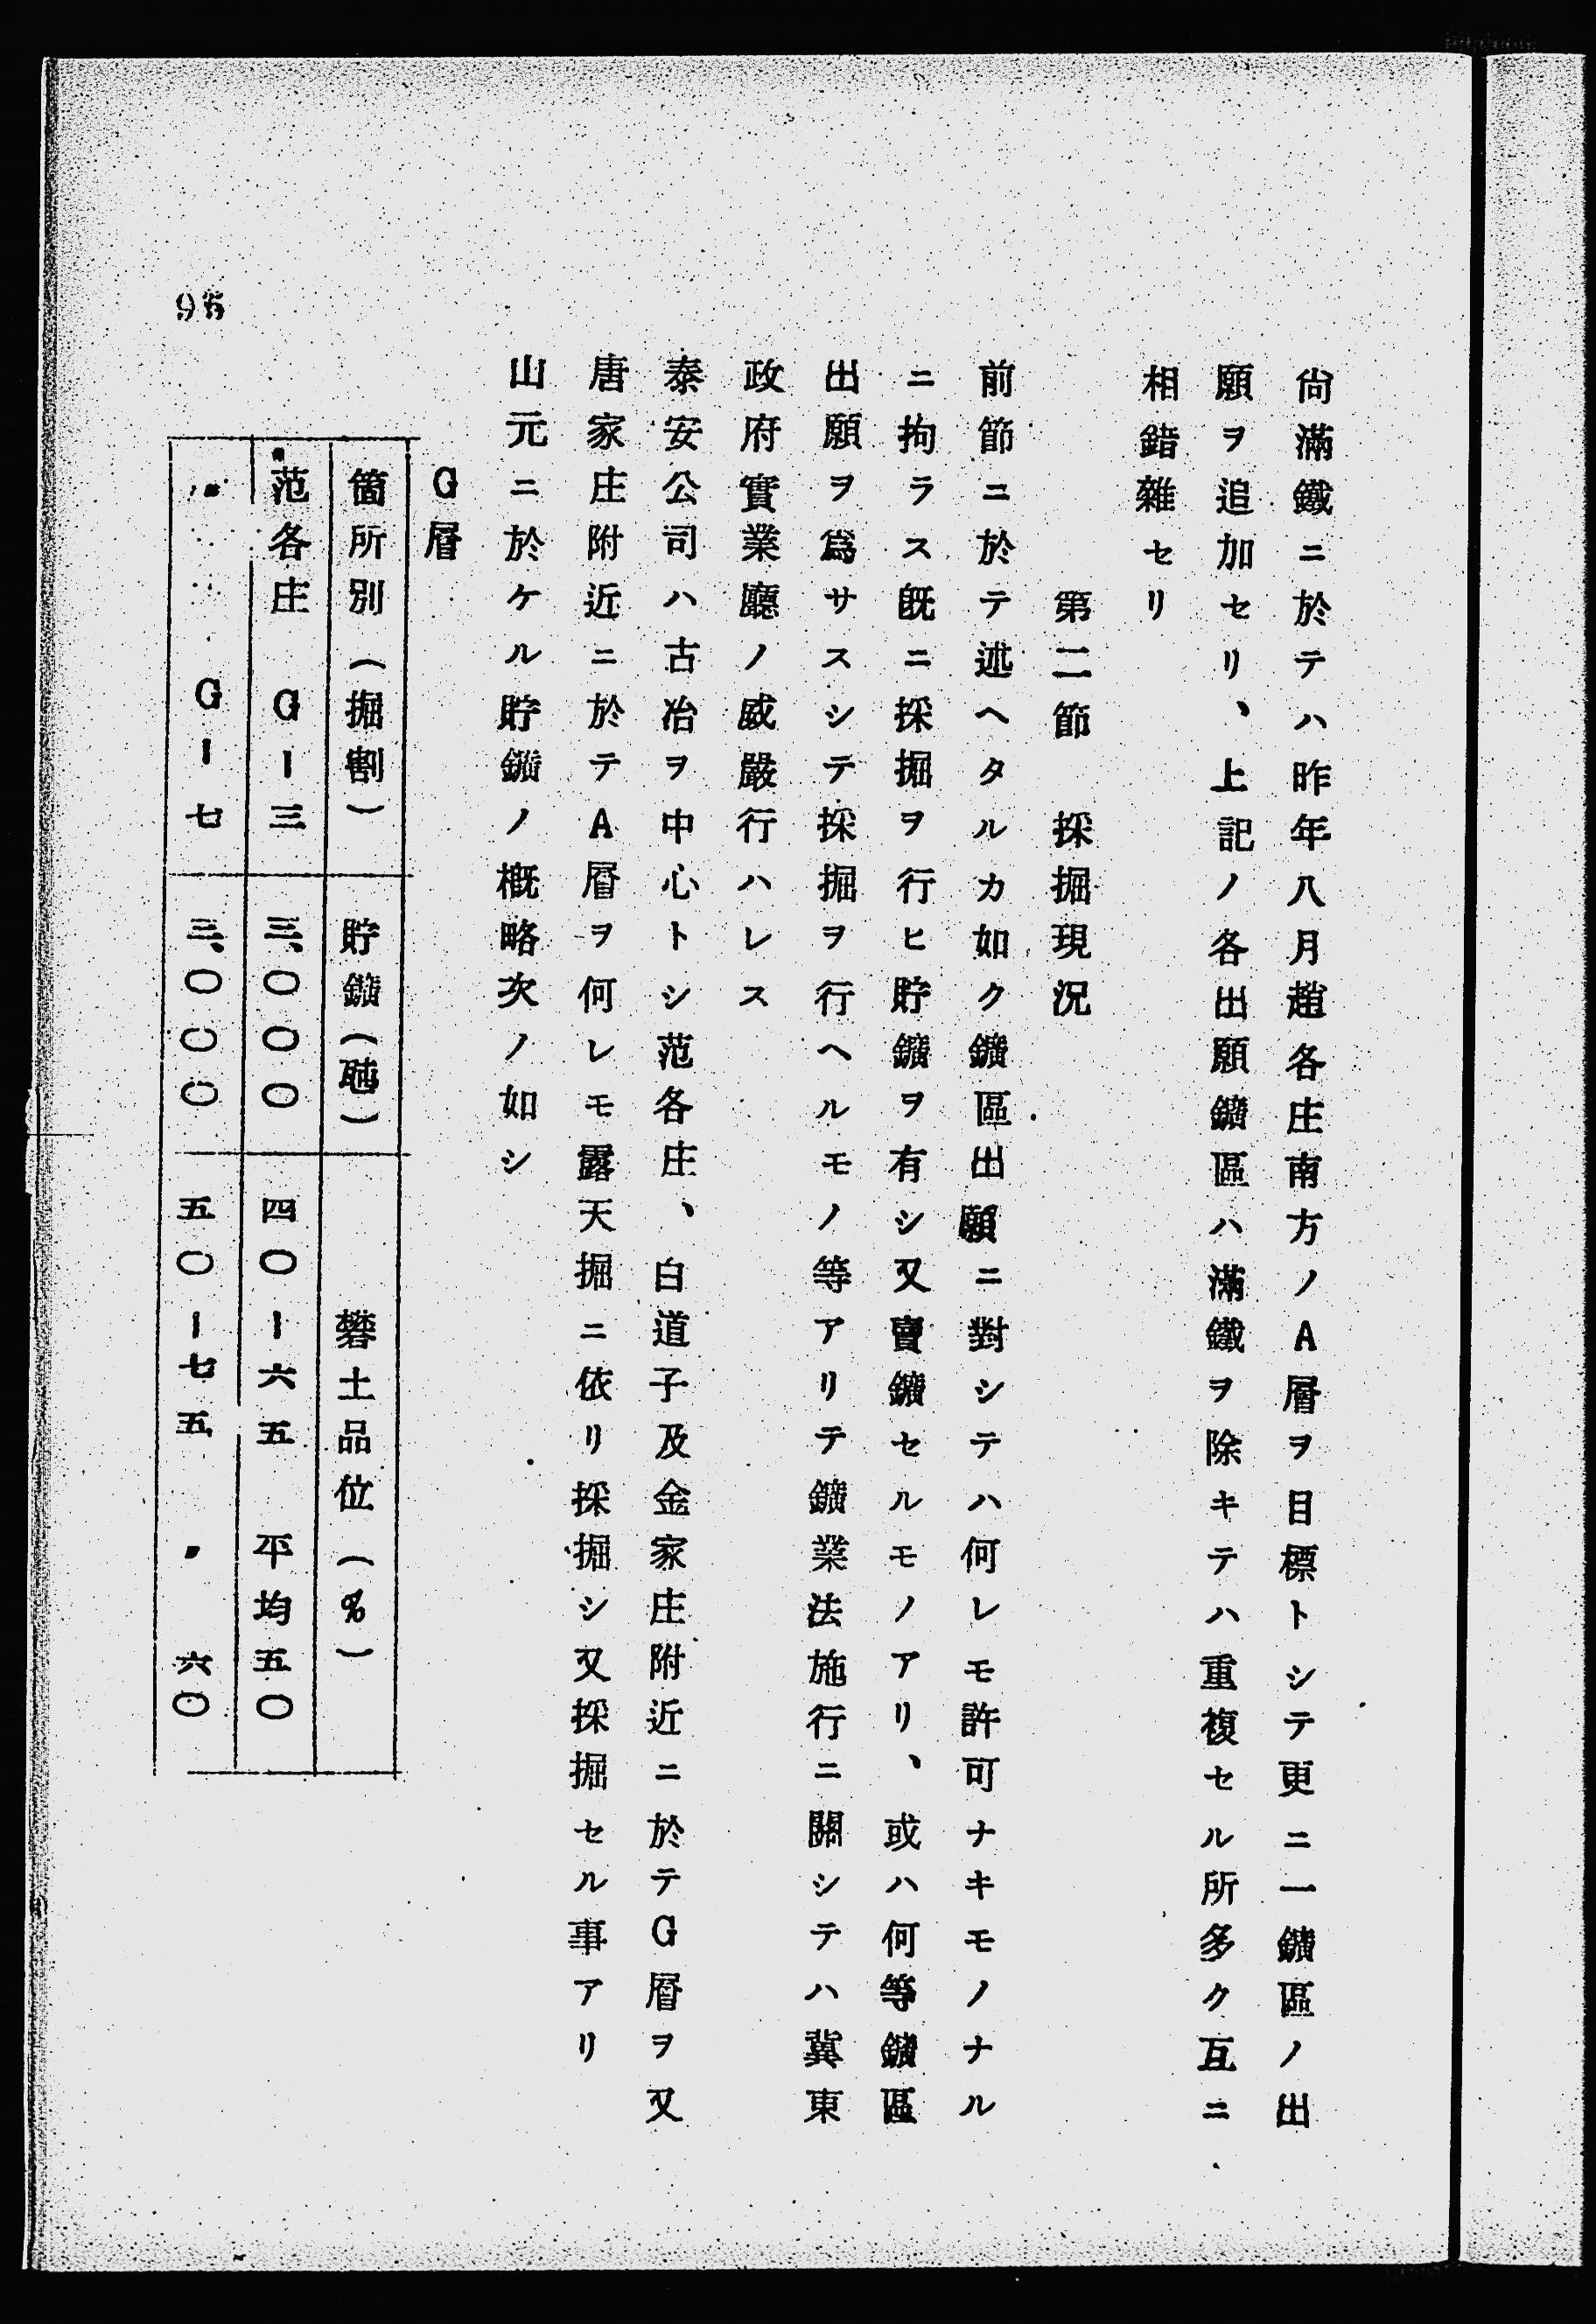 尙滿鐵ニ於テハ昨年八月趙各庄南方ノA層ヲ目標トシテ更ニ一鑛區ノ出
願ヲ追加セリ、上記ノ各出願鑛區ハ滿鐵ヲ除キテハ重複セル所多ク互ニ
相錯雜セリ
第二節 採掘現況
前節ニ於テ述ヘタルカ如ク鑛區出願ニ對シテハ何レモ許可ナキモノナル
ニ拘ラス既ニ採掘ヲ行ヒ貯鑛ヲ有シ又賣鑛セルモノアリ、或ハ何等鑛區
出願ヲ爲サスシテ採掘ヲ行ヘルモノ等アリテ鑛業法施行ニ關シテハ冀東
政府實業廳ノ威嚴行ハレス
泰安公司ハ古冶ヲ中心トシ范各庄、白道子及金家庄附近ニ於テG層ヲ又
唐家庄附近ニ於テA層ヲ何レモ露天掘ニ依リ採掘シ又採掘セル事アリ
山元ニ於ケル貯鑛ノ槪略次ノ如シ
G層
箇所別(掘割) 貯鑛(瓲) 礬土品位(%)
范各庄 G-三 三、〇〇〇 四〇-六五 平均五〇
〃 G-七 三、〇〇〇 五〇-七五 〃 六〇